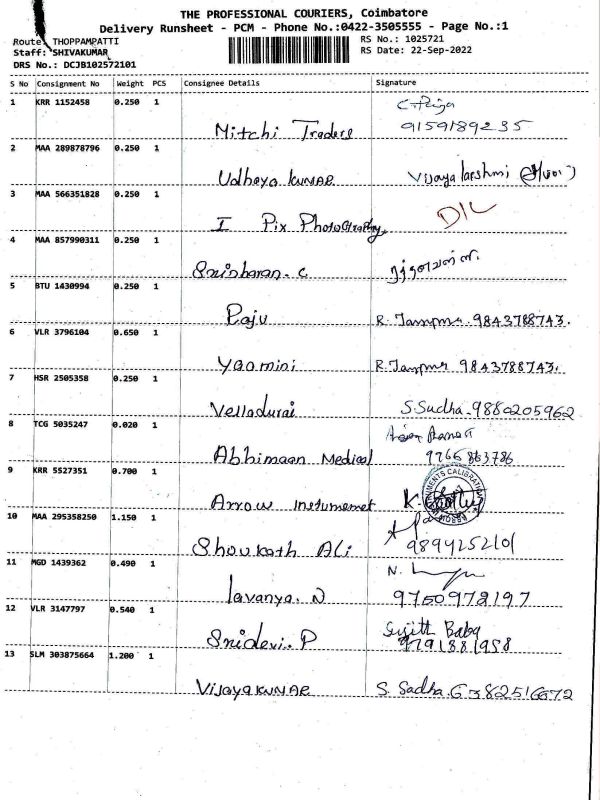 THE PROFESSIONAL COURIERS, Coimbatore
Delivery Runsheet - PCM - Phone No.:0422-3505555 - Page No.:1
Route: THOPPAMPATTI
RS No.: 1025721
Staff: SHIVAKUMAR
RS Date: 22-Sep-2022
DRS No.: DCJB102572101
S No Consignment No Weight PCS Consignee Details Signature
1 KRR 1152458 0.250 1
Mitchi Traders 9159189235
2 MAA 289878796 0.250 1
Udhaya KUMAR Vijaya larshmi
3 MAA 566351828 0.250 1
I Pix PhotoGraphy D/L
4 MAA 857990311 0.250 1
Sriharan. C
5 BTU 1430994 0.250 1
Raju R. 9843788743.
6 VLR 3796104 0.650 1
Yaomini R. 9843788743.
7 HSR 2505358 0.250 1
Velladurai S Sudha. 9880205962
8 TCG 5035247 0.020 1
Abhimaan Medical 9766 863786
9 KRR 5527351 0.700 1
Arrow Instumemet K.
10 MAA 295358250 1.150 1
Shoukath Ali 9894252101
11 MGD 1439362 0.490 1
N.
lavanya. N 9750978197
12 VLR 3147797 0.540 1
Sujith Babu
Sridevi. P 9791881958
13 SLM 303875664 1.200 1
VijayaKUMAR S. Sadha. 6382516672